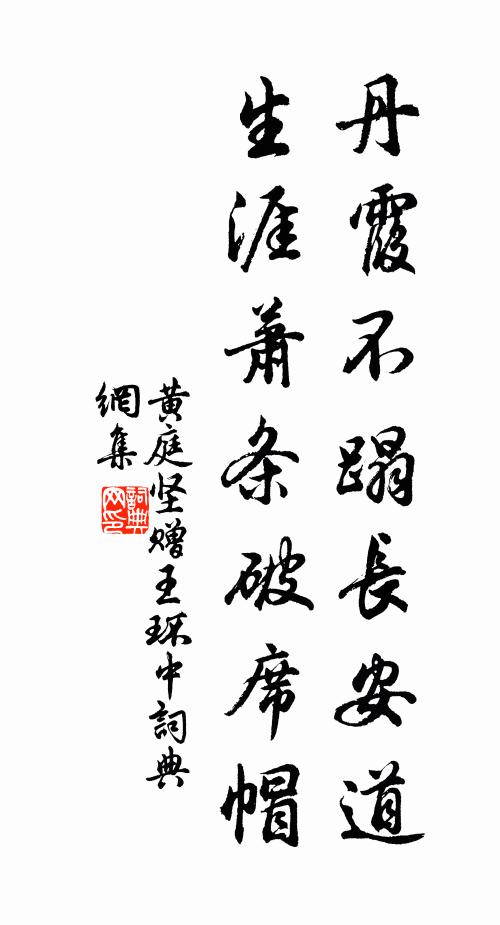 丹霞不蹋長安道
生涯蕭条破席帽
黄庭坚赠王环中詞典
網集
詞典
网印